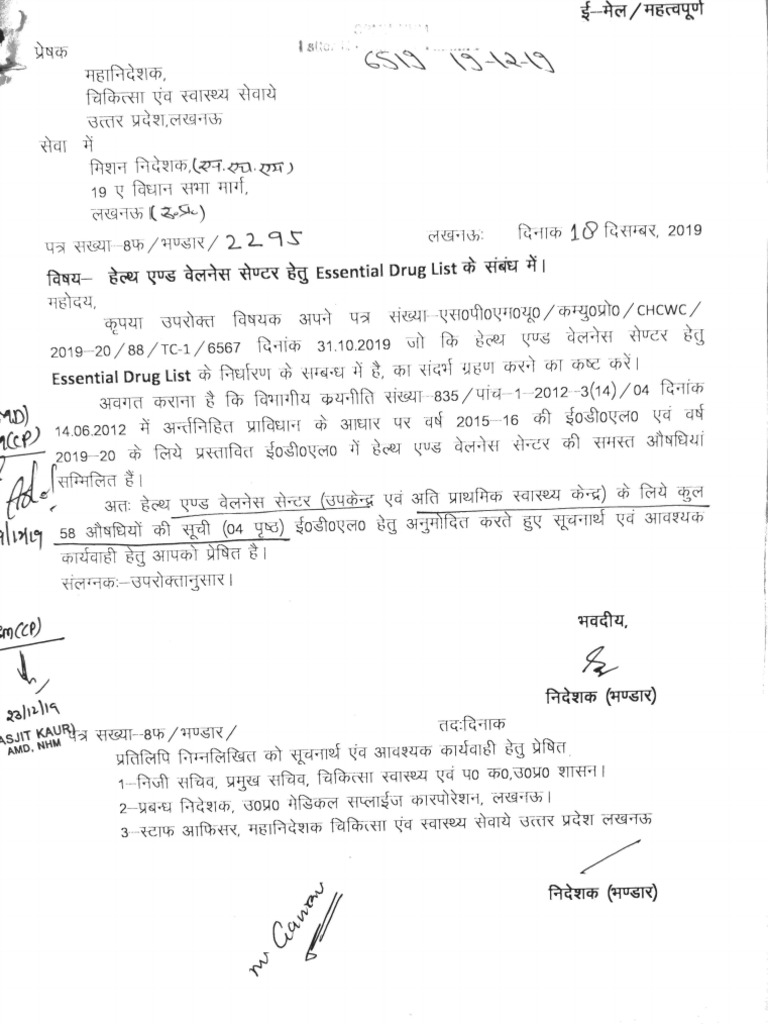 ई–मेल/महत्वपूर्ण
6519 19-12-19
प्रेषक
महानिदेशक,
चिकित्सा एंव स्वास्थ्य सेवाये
उत्तर प्रदेश,लखनऊ
सेवा में
मिशन निदेशक,(एन.एच.एम)
19 ए विधान सभा मार्ग,
लखनऊ।(उ०प्र०)
पत्र सख्या–8फ/भण्डार/2295 लखनऊः दिनाक 18 दिसम्बर, 2019
विषय– हेल्थ एण्ड वेलनेस सेण्टर हेतु Essential Drug List के संबंध में।
महोदय,
कृपया उपरोक्त विषयक अपने पत्र संख्या–एस0पी0एम0यू0/कम्यु0प्रो0/CHCWC/
2019-20/88/TC-1/6567 दिनांक 31.10.2019 जो कि हेल्थ एण्ड वेलनेस सेण्टर हेतु
Essential Drug List के निर्धारण के सम्बन्ध में है, का संदर्भ ग्रहण करने का कष्ट करें।
अवगत कराना है कि विभागीय क्रयनीति संख्या–835/पांच–1–2012–3(14)/04 दिनांक
14.06.2012 में अर्न्तनिहित प्राविधान के आधार पर वर्ष 2015–16 की ई0डी0एल0 एवं वर्ष
2019–20 के लिये प्रस्तावित ई0डी0एल0 में हेल्थ एण्ड वेलनेस सेन्टर की समस्त औषधियां
सम्मिलित हैं।
अतः हेल्थ एण्ड वेलनेस सेन्टर (उपकेन्द्र एवं अति प्राथमिक स्वास्थ्य केन्द्र) के लिये कुल
58 औषधियों की सूची (04 पृष्ठ) ई0डी0एल0 हेतु अनुमोदित करते हुए सूचनार्थ एवं आवश्यक
कार्यवाही हेतु आपको प्रेषित है।
संलग्नकः–उपरोक्तानुसार।
भवदीय,
निदेशक (भण्डार)
(CP)
23/12/19
ASJIT KAUR)
AMD, NHM
पत्र सख्या–8फ/भण्डार/ तदःदिनाक
प्रतिलिपि निम्नलिखित को सूचनार्थ एंव आवश्यक कार्यवाही हेतु प्रेषित.
1–निजी सचिव, प्रमुख सचिव, चिकित्सा स्वास्थ्य एवं प0 क0,उ0प्र0 शासन।
2–प्रबन्ध निदेशक, उ0प्र0 मेडिकल सप्लाईज कारपोरेशन, लखनऊ।
3–स्टाफ आफिसर, महानिदेशक चिकित्सा एंव स्वास्थ्य सेवाये उत्तर प्रदेश लखनऊ
निदेशक (भण्डार)